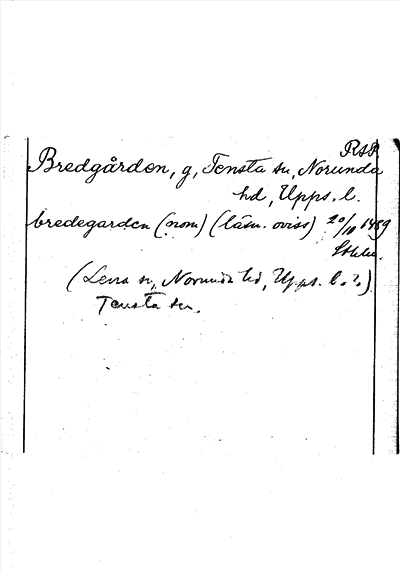 RSP
Bredgården, g, Tensta sn, Norunda
hd, Upps. l.
bredegarden (nom) (läsn. oviss) 20/10 1489
(Lena sn, Norunda hd, Upps. l.?)
Tensta sn.